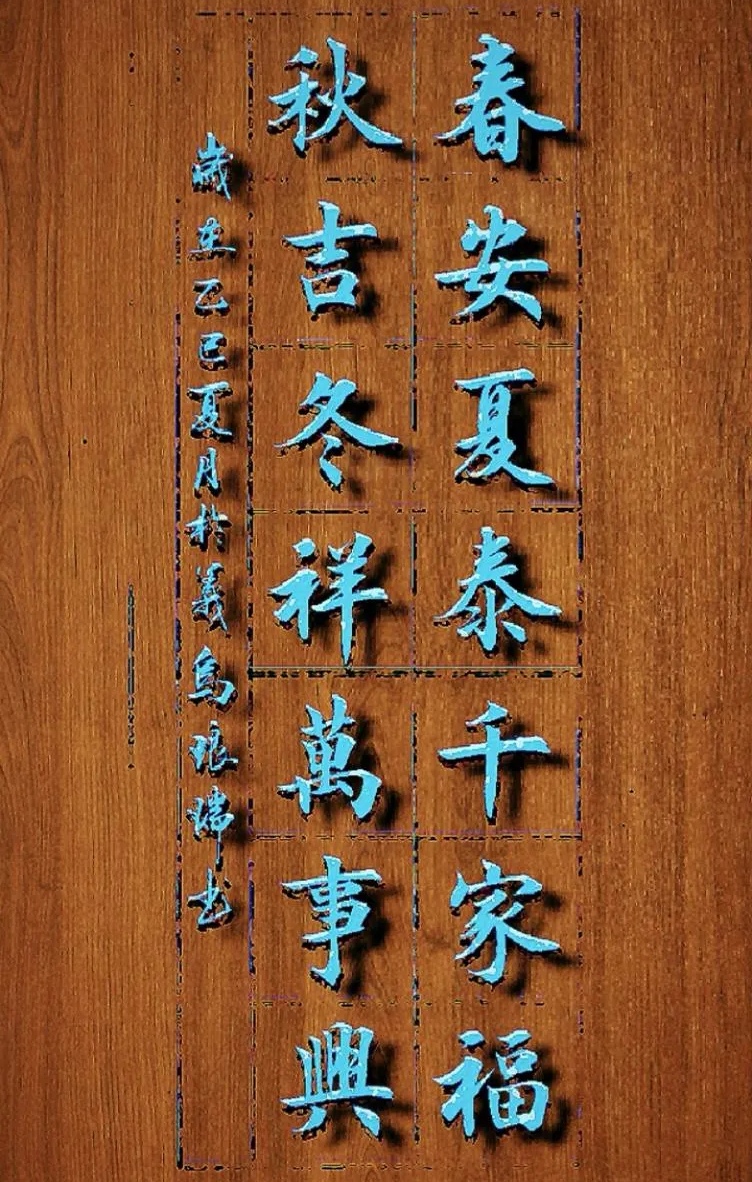 春安夏泰千家福
秋吉冬祥萬事興
歲在乙巳夏月於義烏琅瑞书